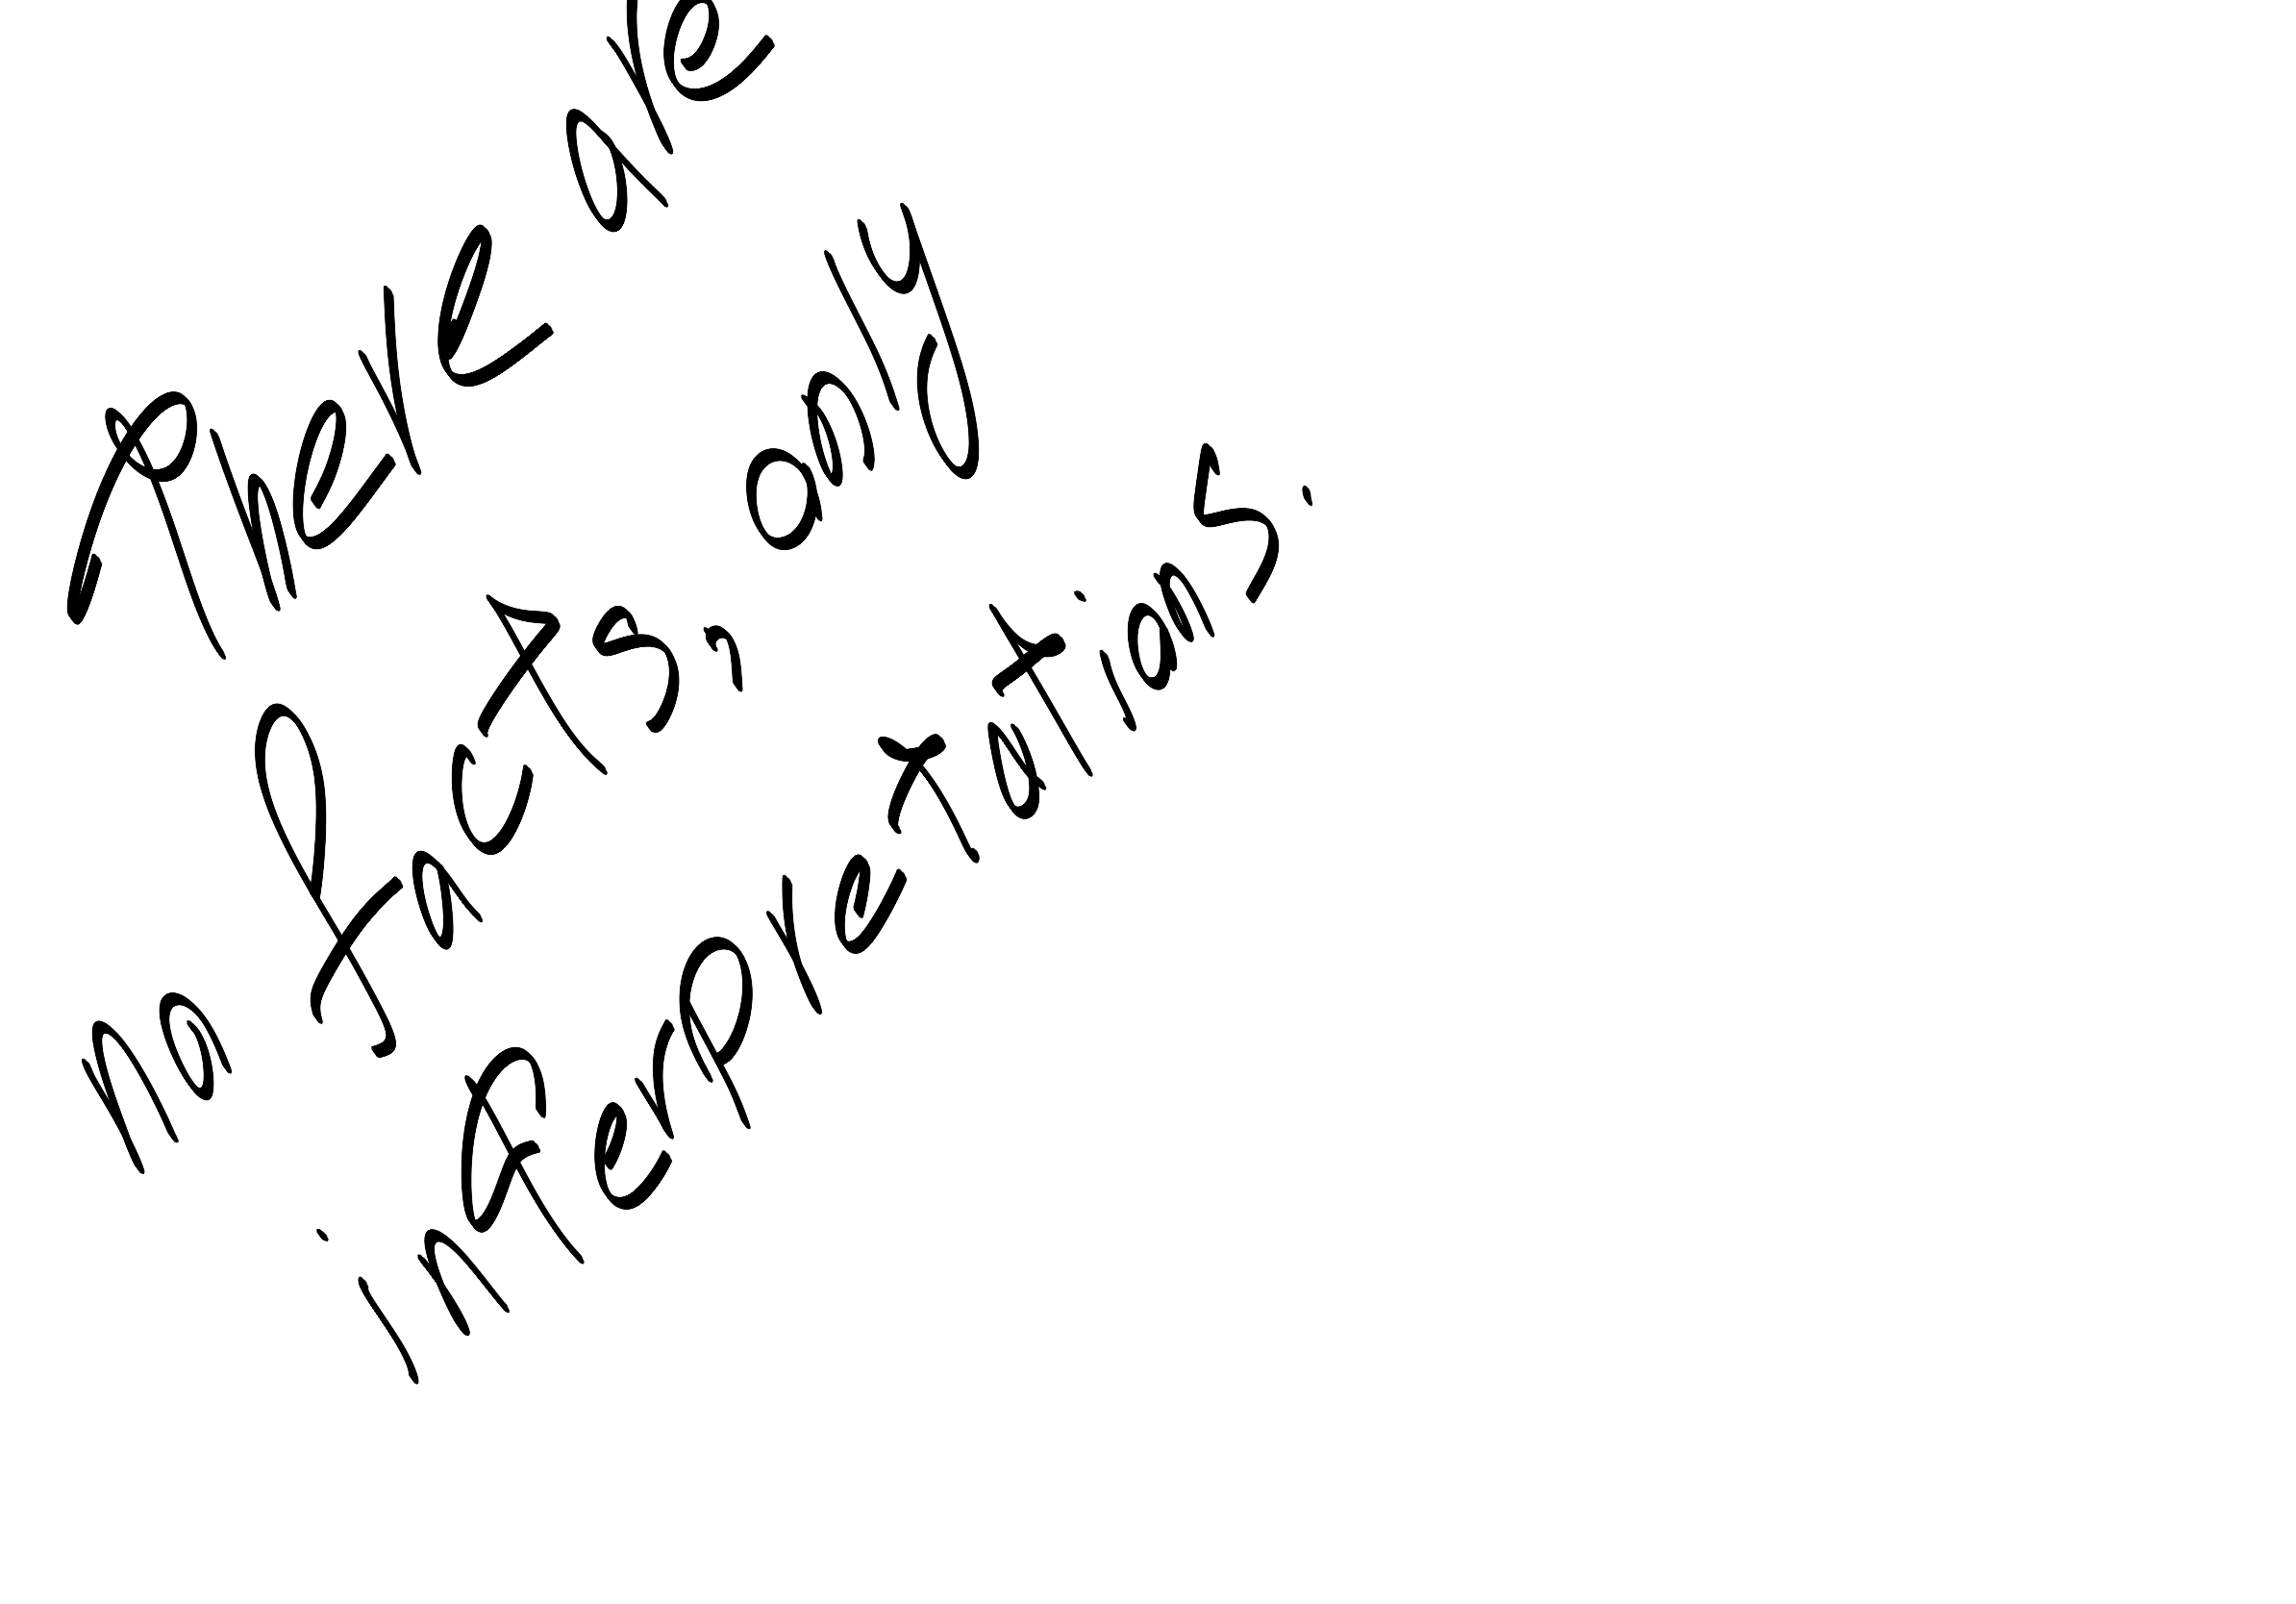 There are
no facts, only
interpretations.